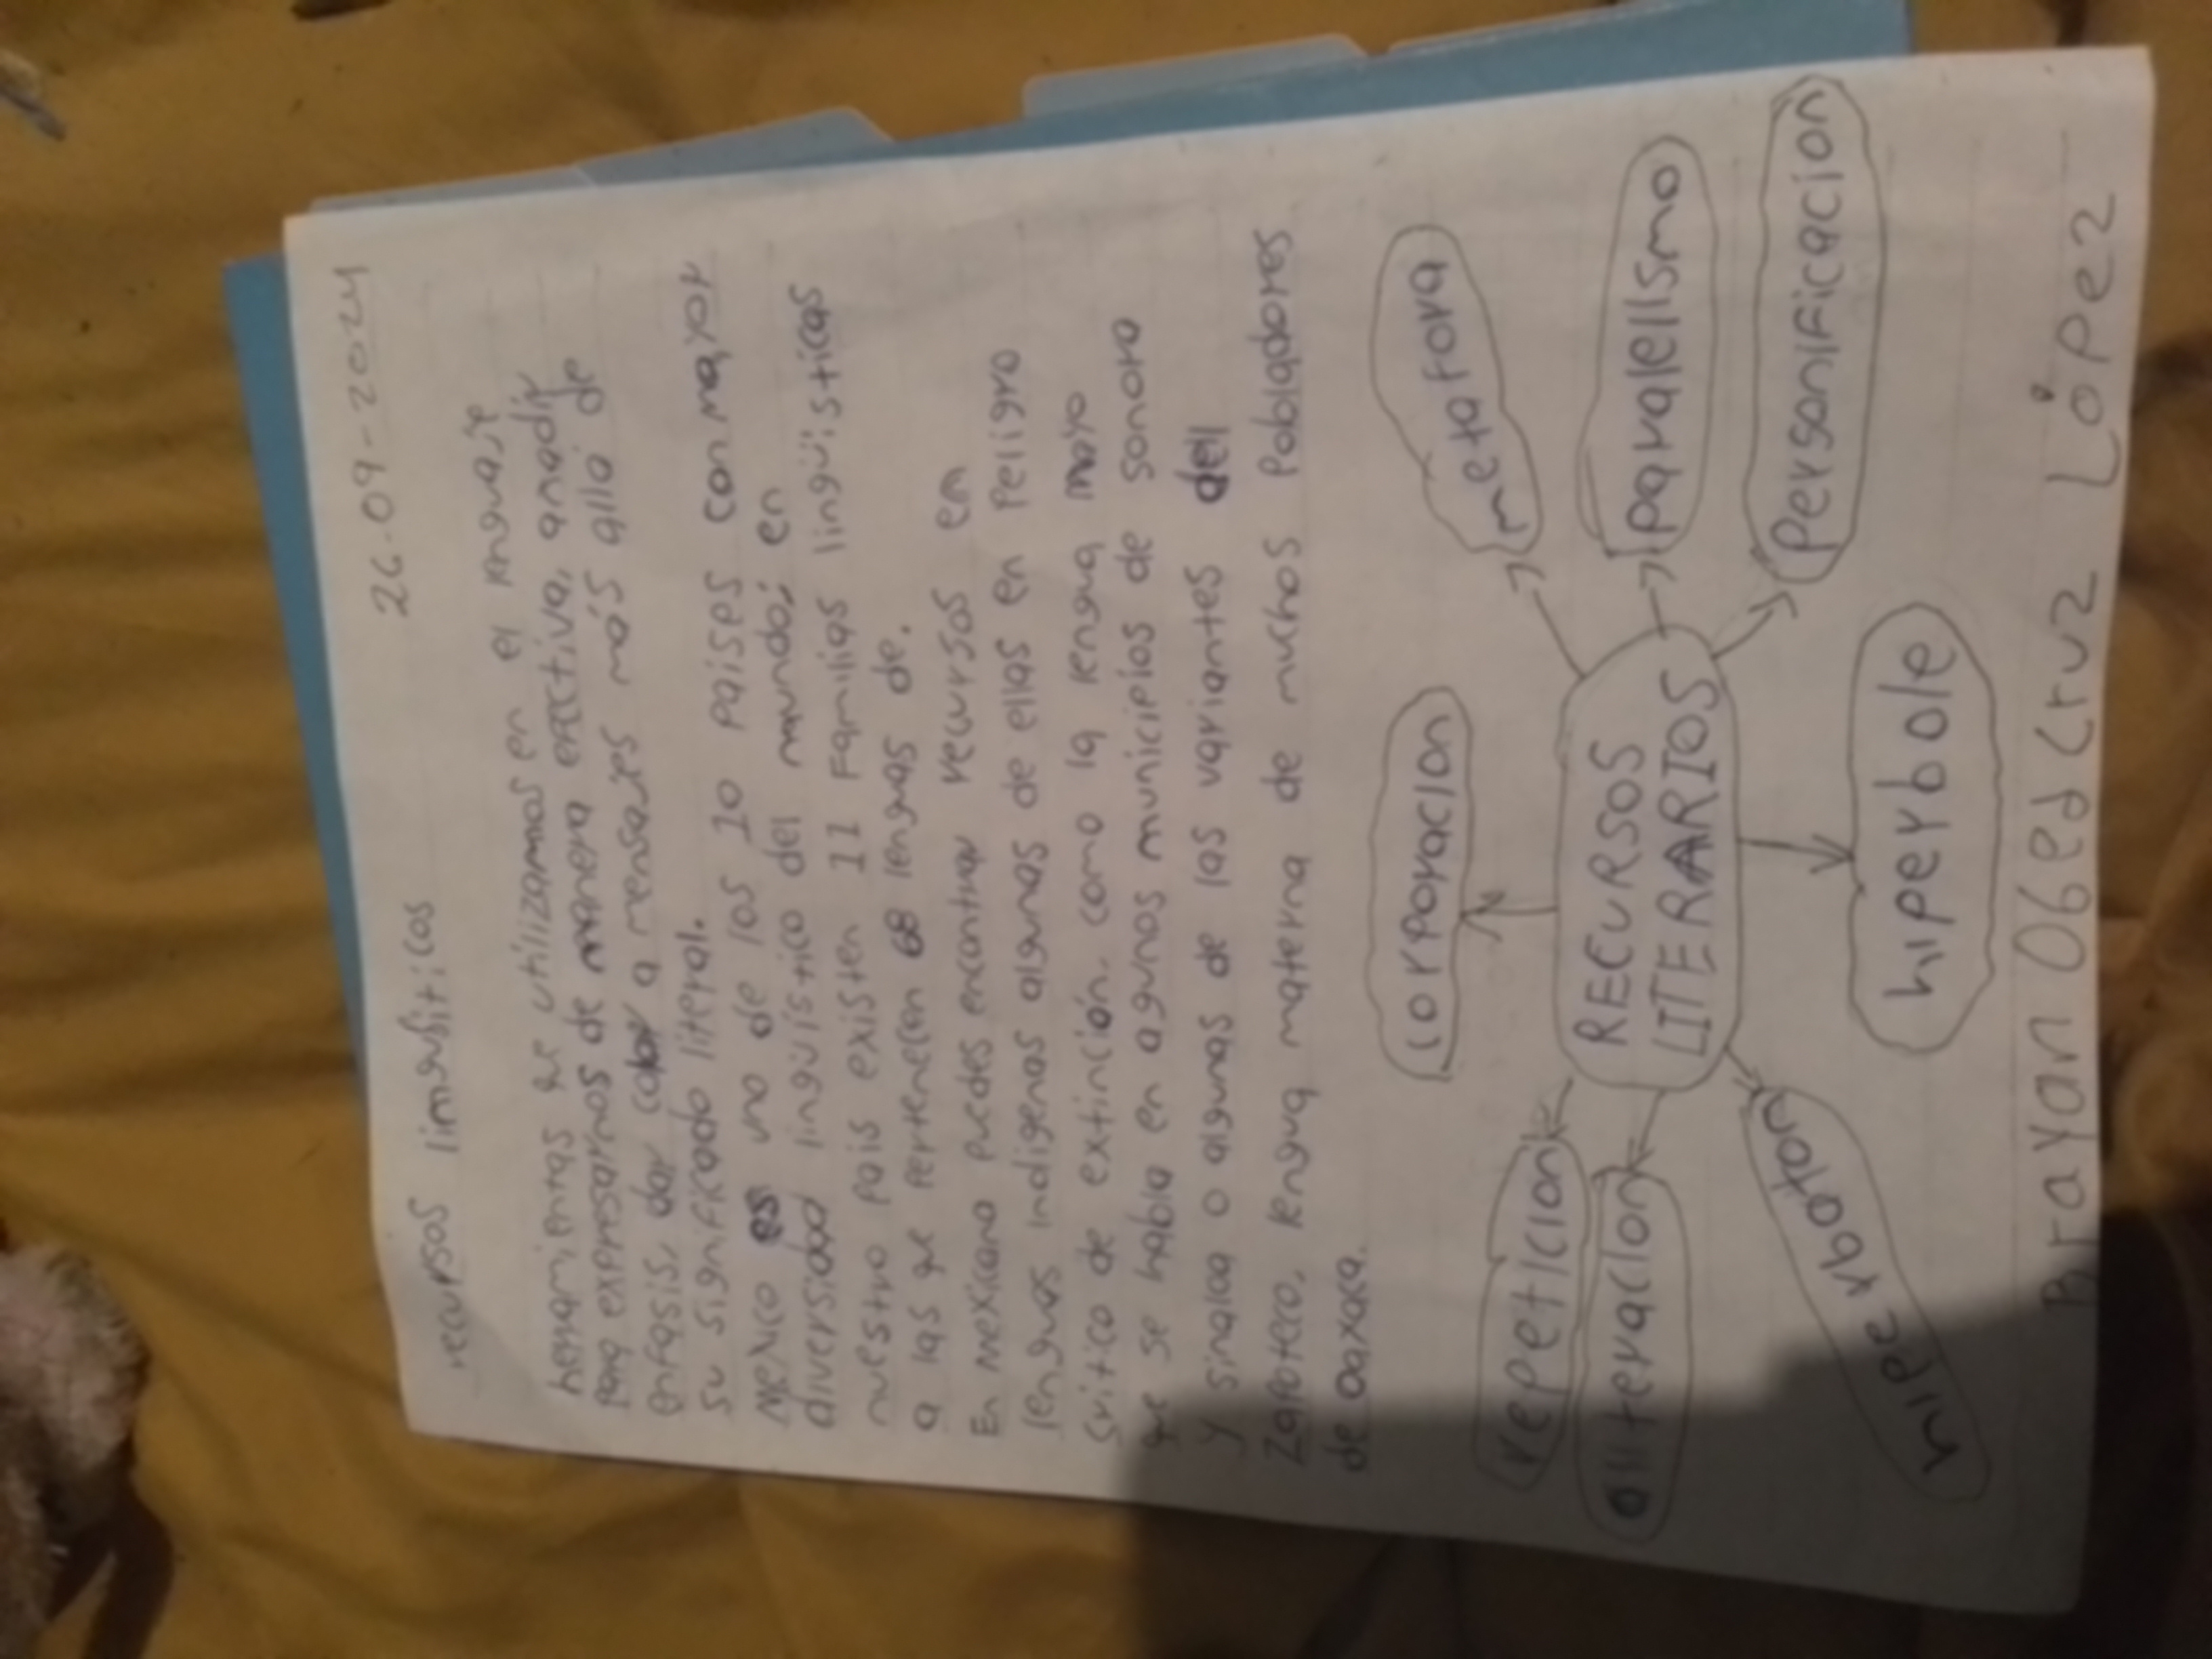 26-09-2024
recursos limguíticos
herramientas que utilizamos en el lenguaje
para expresarnos de manera efectiva, anadir
enfasis, dar color a mensajes más alla de
su significado literal.
Mexico es uno de los 10 paises con mayor
diversidad lingüístico del mundo; en
nuestro pais existen 11 familias lingüisticas
a las que pertenecen 68 lenguas de.
En mexicano puedes encontrar recursos en
lenguas indigenas algunas de ellas en peligro
critico de extinción, como la lengua mayo
que se habla en agunos municipios de sonora
y sinaloa o algunas de las variantes dell
zapoteco, lengua materna de muchos pobladores
de oaxaca.
corporacion
metafora
repeticion
RECURSOS
LITERARIOS
paralelismo
aliteracion
personificacion
hiperbaton
hiperbole
Brayan Obed Cruz López